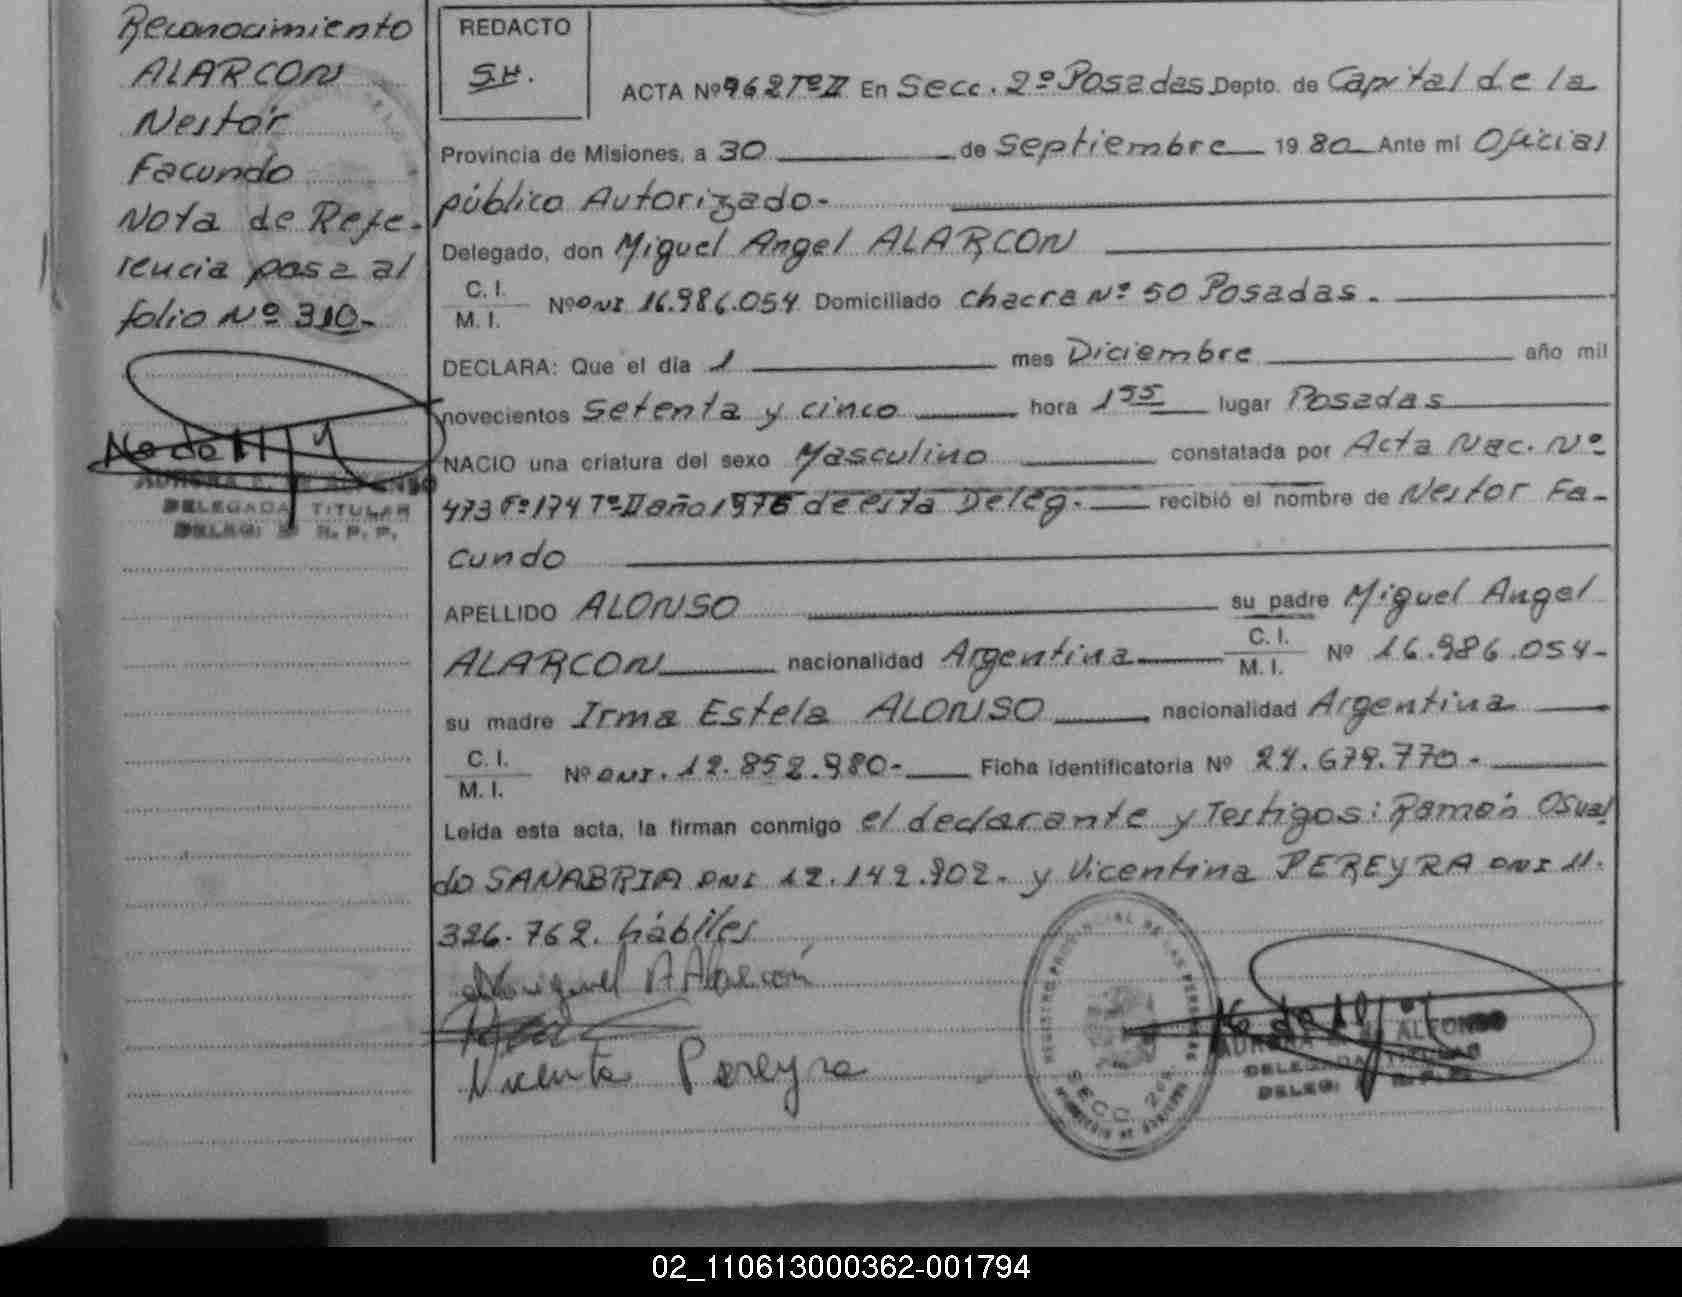 Reconocimiento
ALARCON
Nestor
Facundo
Nota de Refe-
rencia pasa al
folio Nº 310-
AURORA E. DE ALFONSO
DELEGADA TITULAR
DELEG: R. P. P.
REDACTO
S.H.
ACTA Nº 962 Tº II En Secc. 2º Posadas Depto. de Capital de la
Provincia de Misiones, a 30 de Septiembre 1980 Ante mi Oficial
público Autorizado.
Delegado, don Miguel Angel ALARCON
C. I.
M. I. Nº DNI 16.986.054 Domiciliado chacra Nº 50 Posadas.
DECLARA: Que el día 1 mes Diciembre año mil
novecientos Setenta y cinco hora 1 55 lugar Posadas
NACIO una criatura del sexo Masculino constatada por Acta Nac. Nº
473 Fº 174 Tº II año 1976 de esta Deleg. recibió el nombre de Nestor Fa-
cundo
APELLIDO ALONSO su padre Miguel Angel
ALARCON nacionalidad Argentina C. I.
M. I. Nº 16.986.054-
su madre Irma Estela ALONSO nacionalidad Argentina
C. I.
M. I. Nº DNI. 12.852.980- Ficha identificatoria Nº 24.679.770.
Leída esta acta, la firman conmigo el declarante y Testigos: Ramón Osval
do SANABRIA DNI 12.142.902. y Vicentina PEREYRA DNI 11.
326.762. hábiles
Miguel A Alarcón
Pereyra
REGISTRO PROVINCIAL DE LAS PERSONAS
SECC. 2da
ALFONSO
DELEGADA TITULAR
DELEG:
02_110613000362-001794